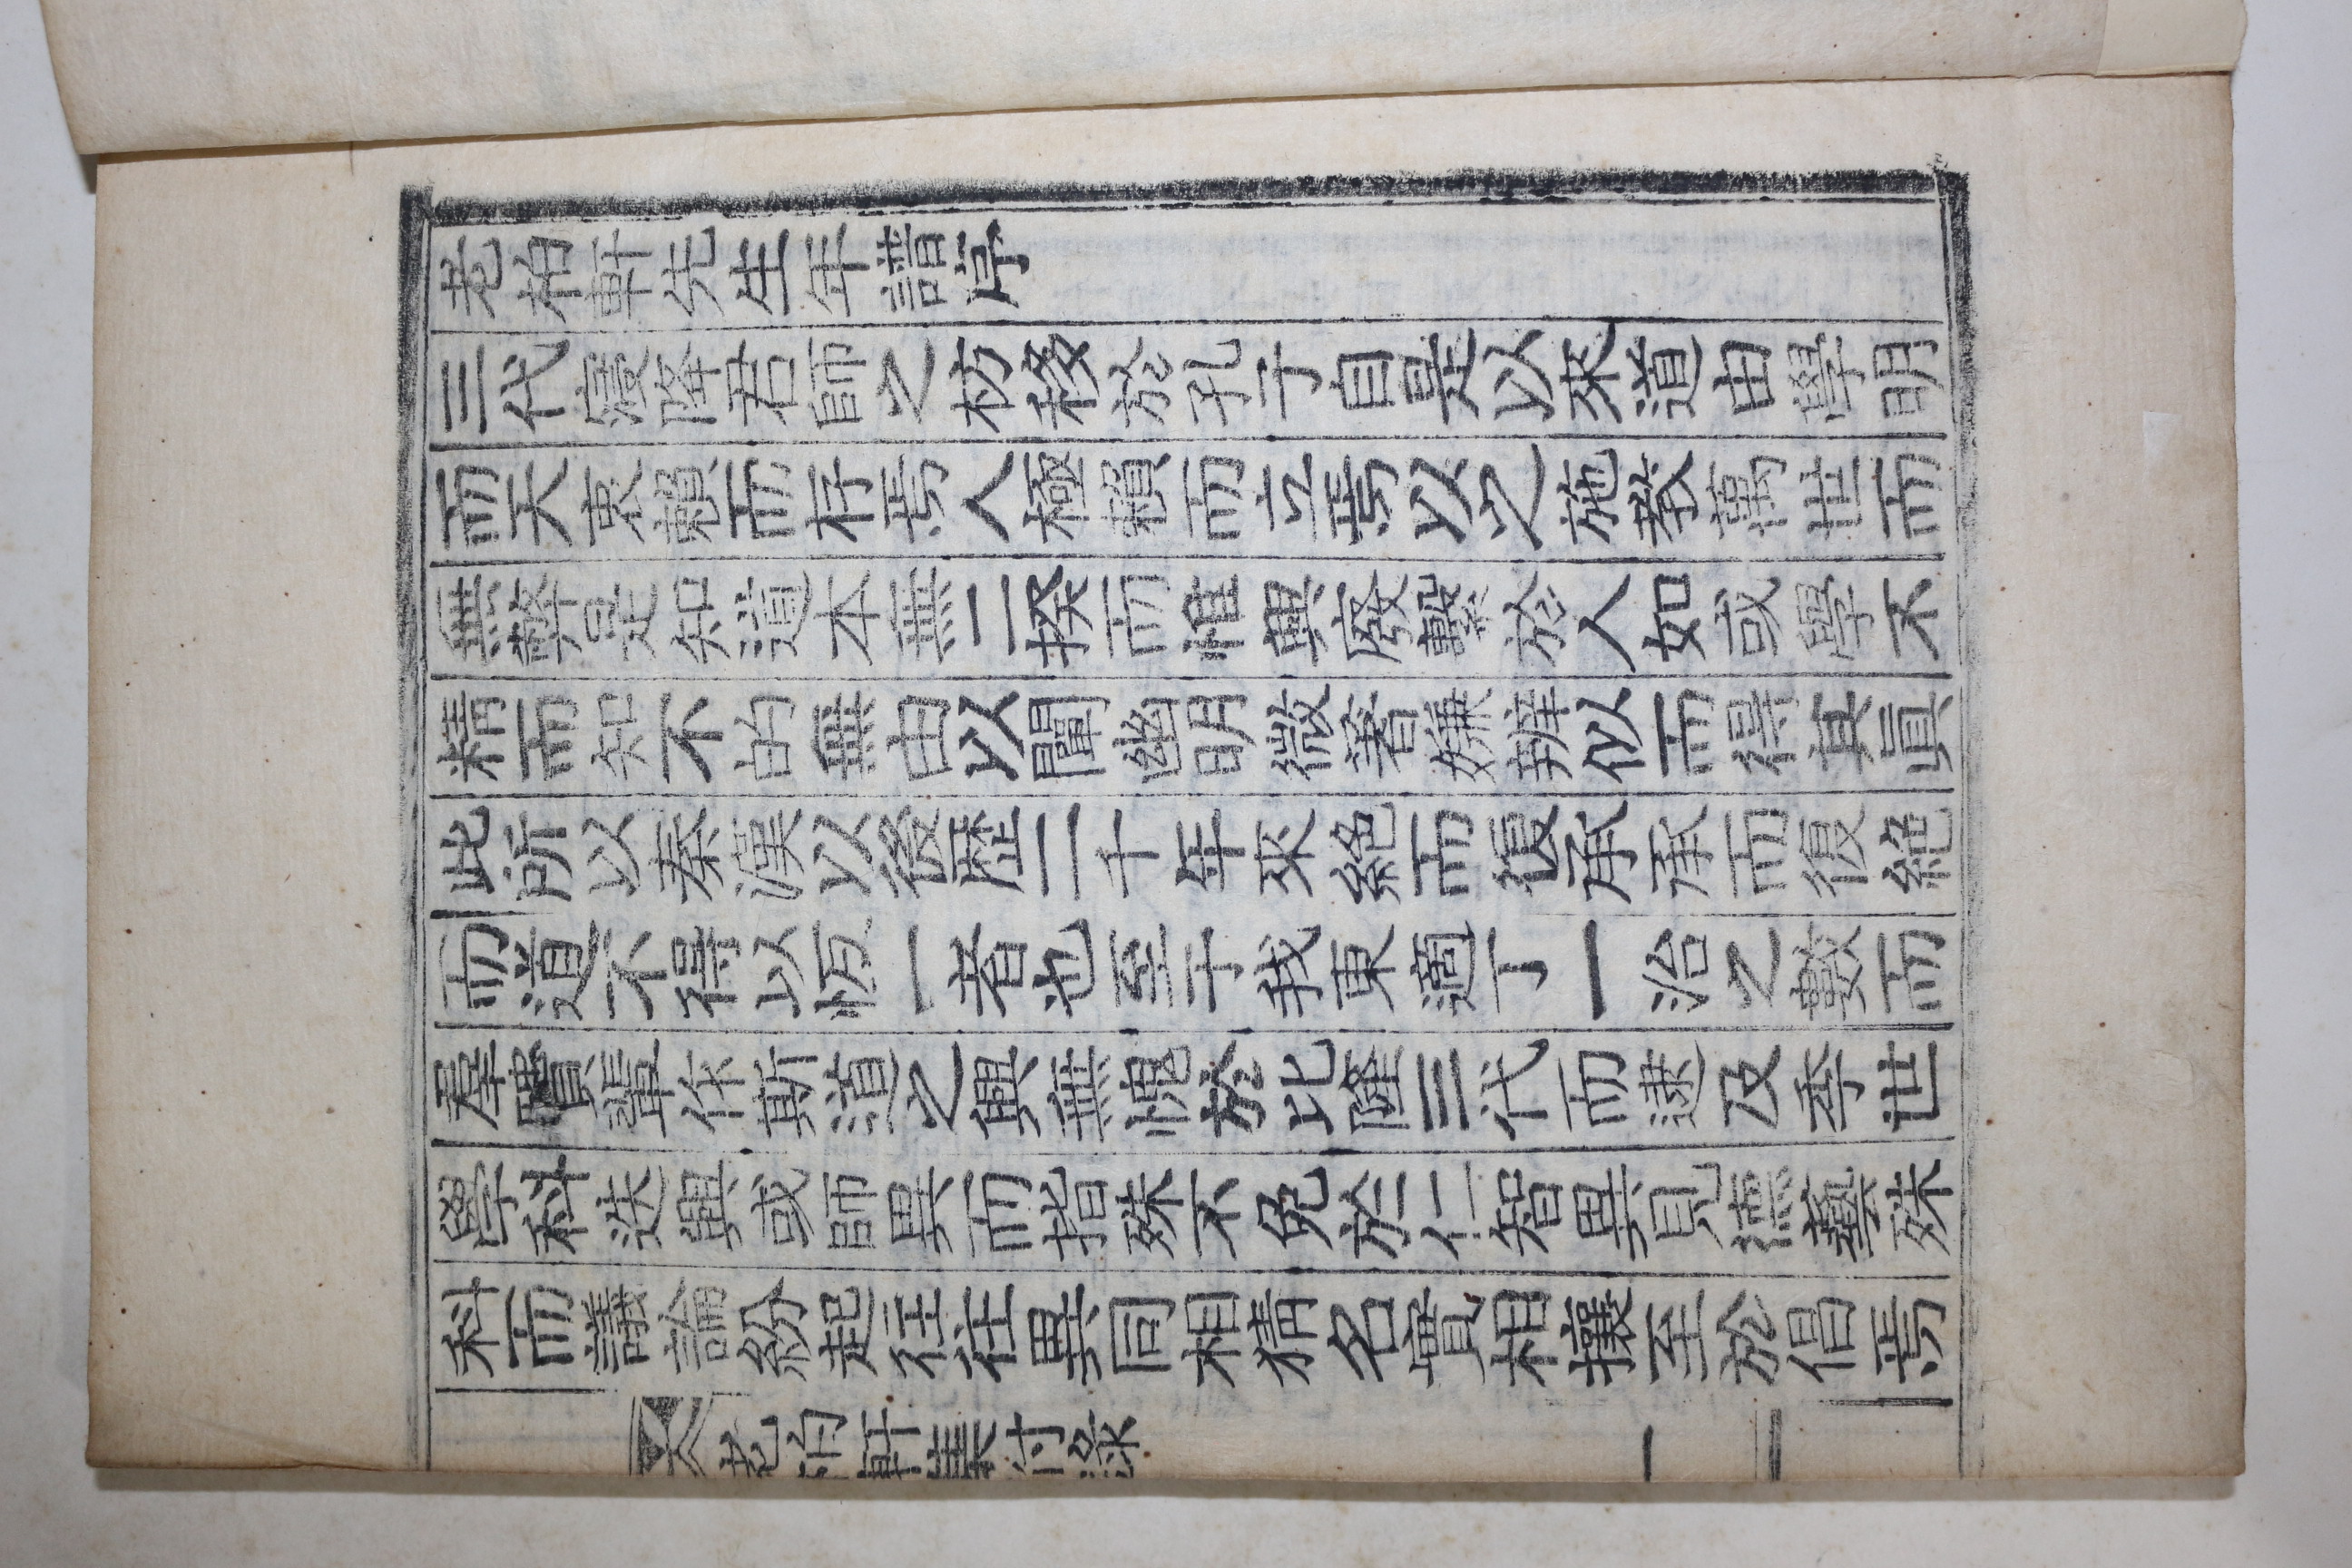 老柏軒先生年譜序
三代寖降君師之枋移於孔子自是以來道由學明
而天衷賴而存焉人極賴而立焉以之施教萬世而
無弊是知道本無二揆而惟興廢繫於人如或學不
精而知不的無由以闡幽明微著嫌辨似而得其眞
此所以秦漢以後歷二千年來絕而復承承而復絕
而道不得以恆一者也至于我東適丁一治之數而
羣賢輩作斯道之興無愧於比隆三代而逮及季世
學科迭興或師異而指殊不免於仁智異見德藝殊
科而議論紛起往往異同相猜名實相攘至於倡焉
老柏軒集付錄 一